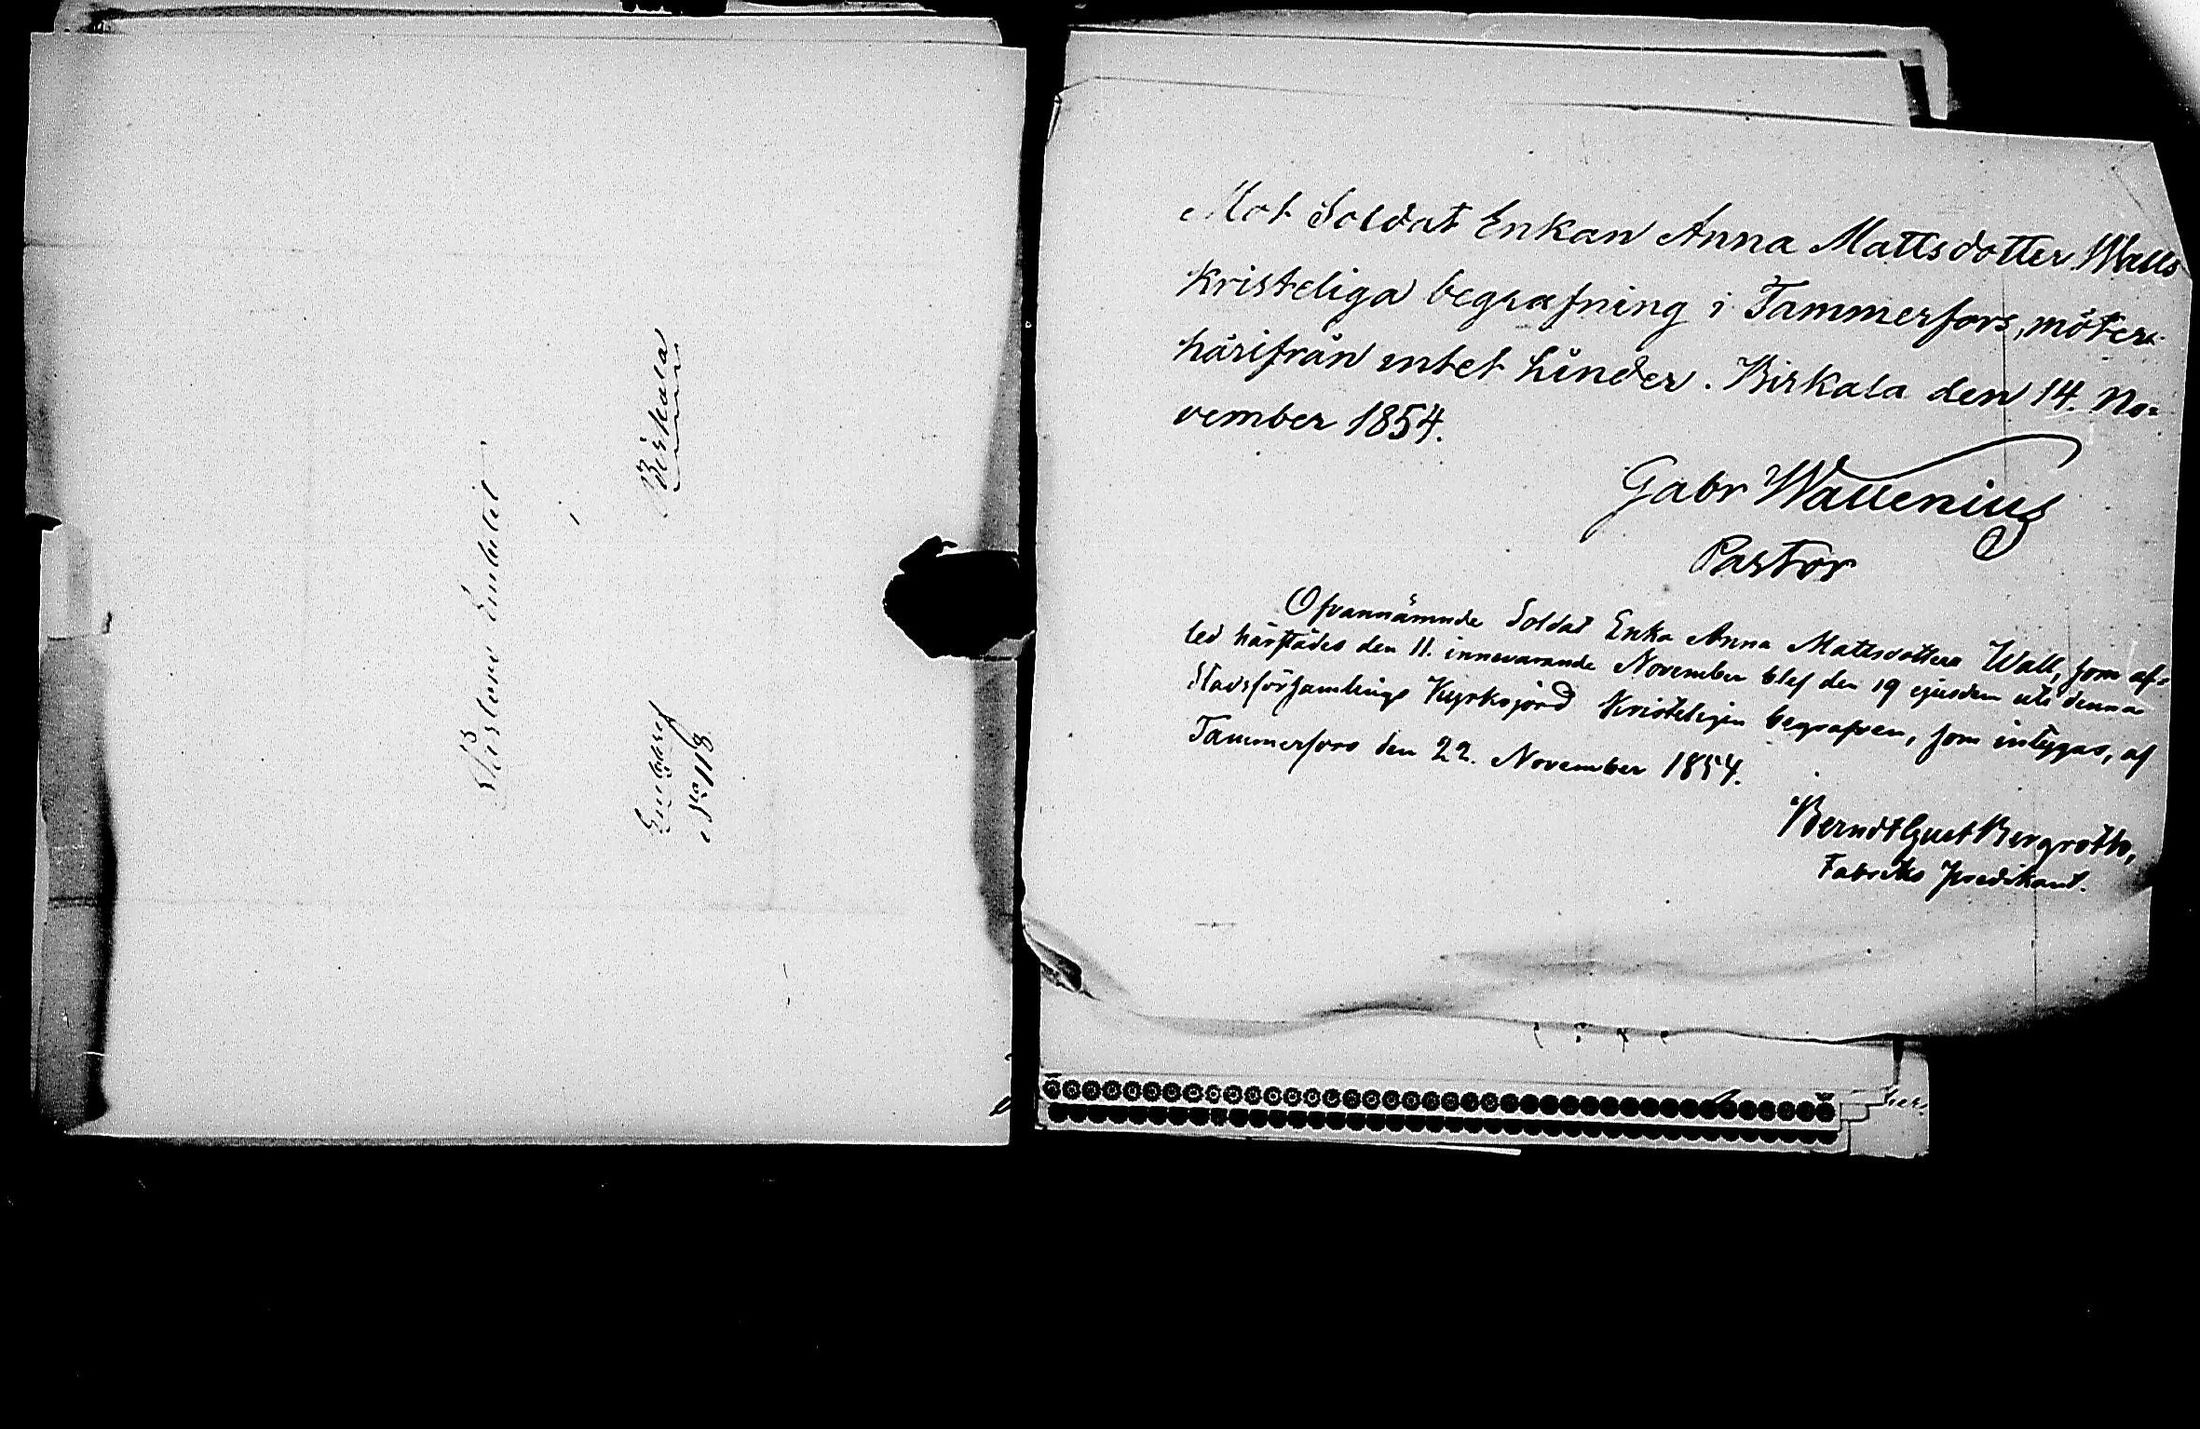 Pastors Embetet
i
Birkala
Embtsbref
No 118
Mot Soldat Enkan Anna Mattsdotter Walls
kristeliga begrafning i Tammerfors, möter
härifrån intet hinder. Birkala den 14. No=
vember 1854.
Gabr Wallenius
Pastor
Ofvannämnde Soldat Enka Anna Mattsdotter Wall, som af=
led härstädes den 11. innevarande November blef den 19 ejusdem uti denna
Stadsförsamlings Kyrkojord Kristeligen begrafven, som intygas, af
Tammerfors den 22. November 1854.
Berndt Gust Bergroth,
Fabriks Predikant.